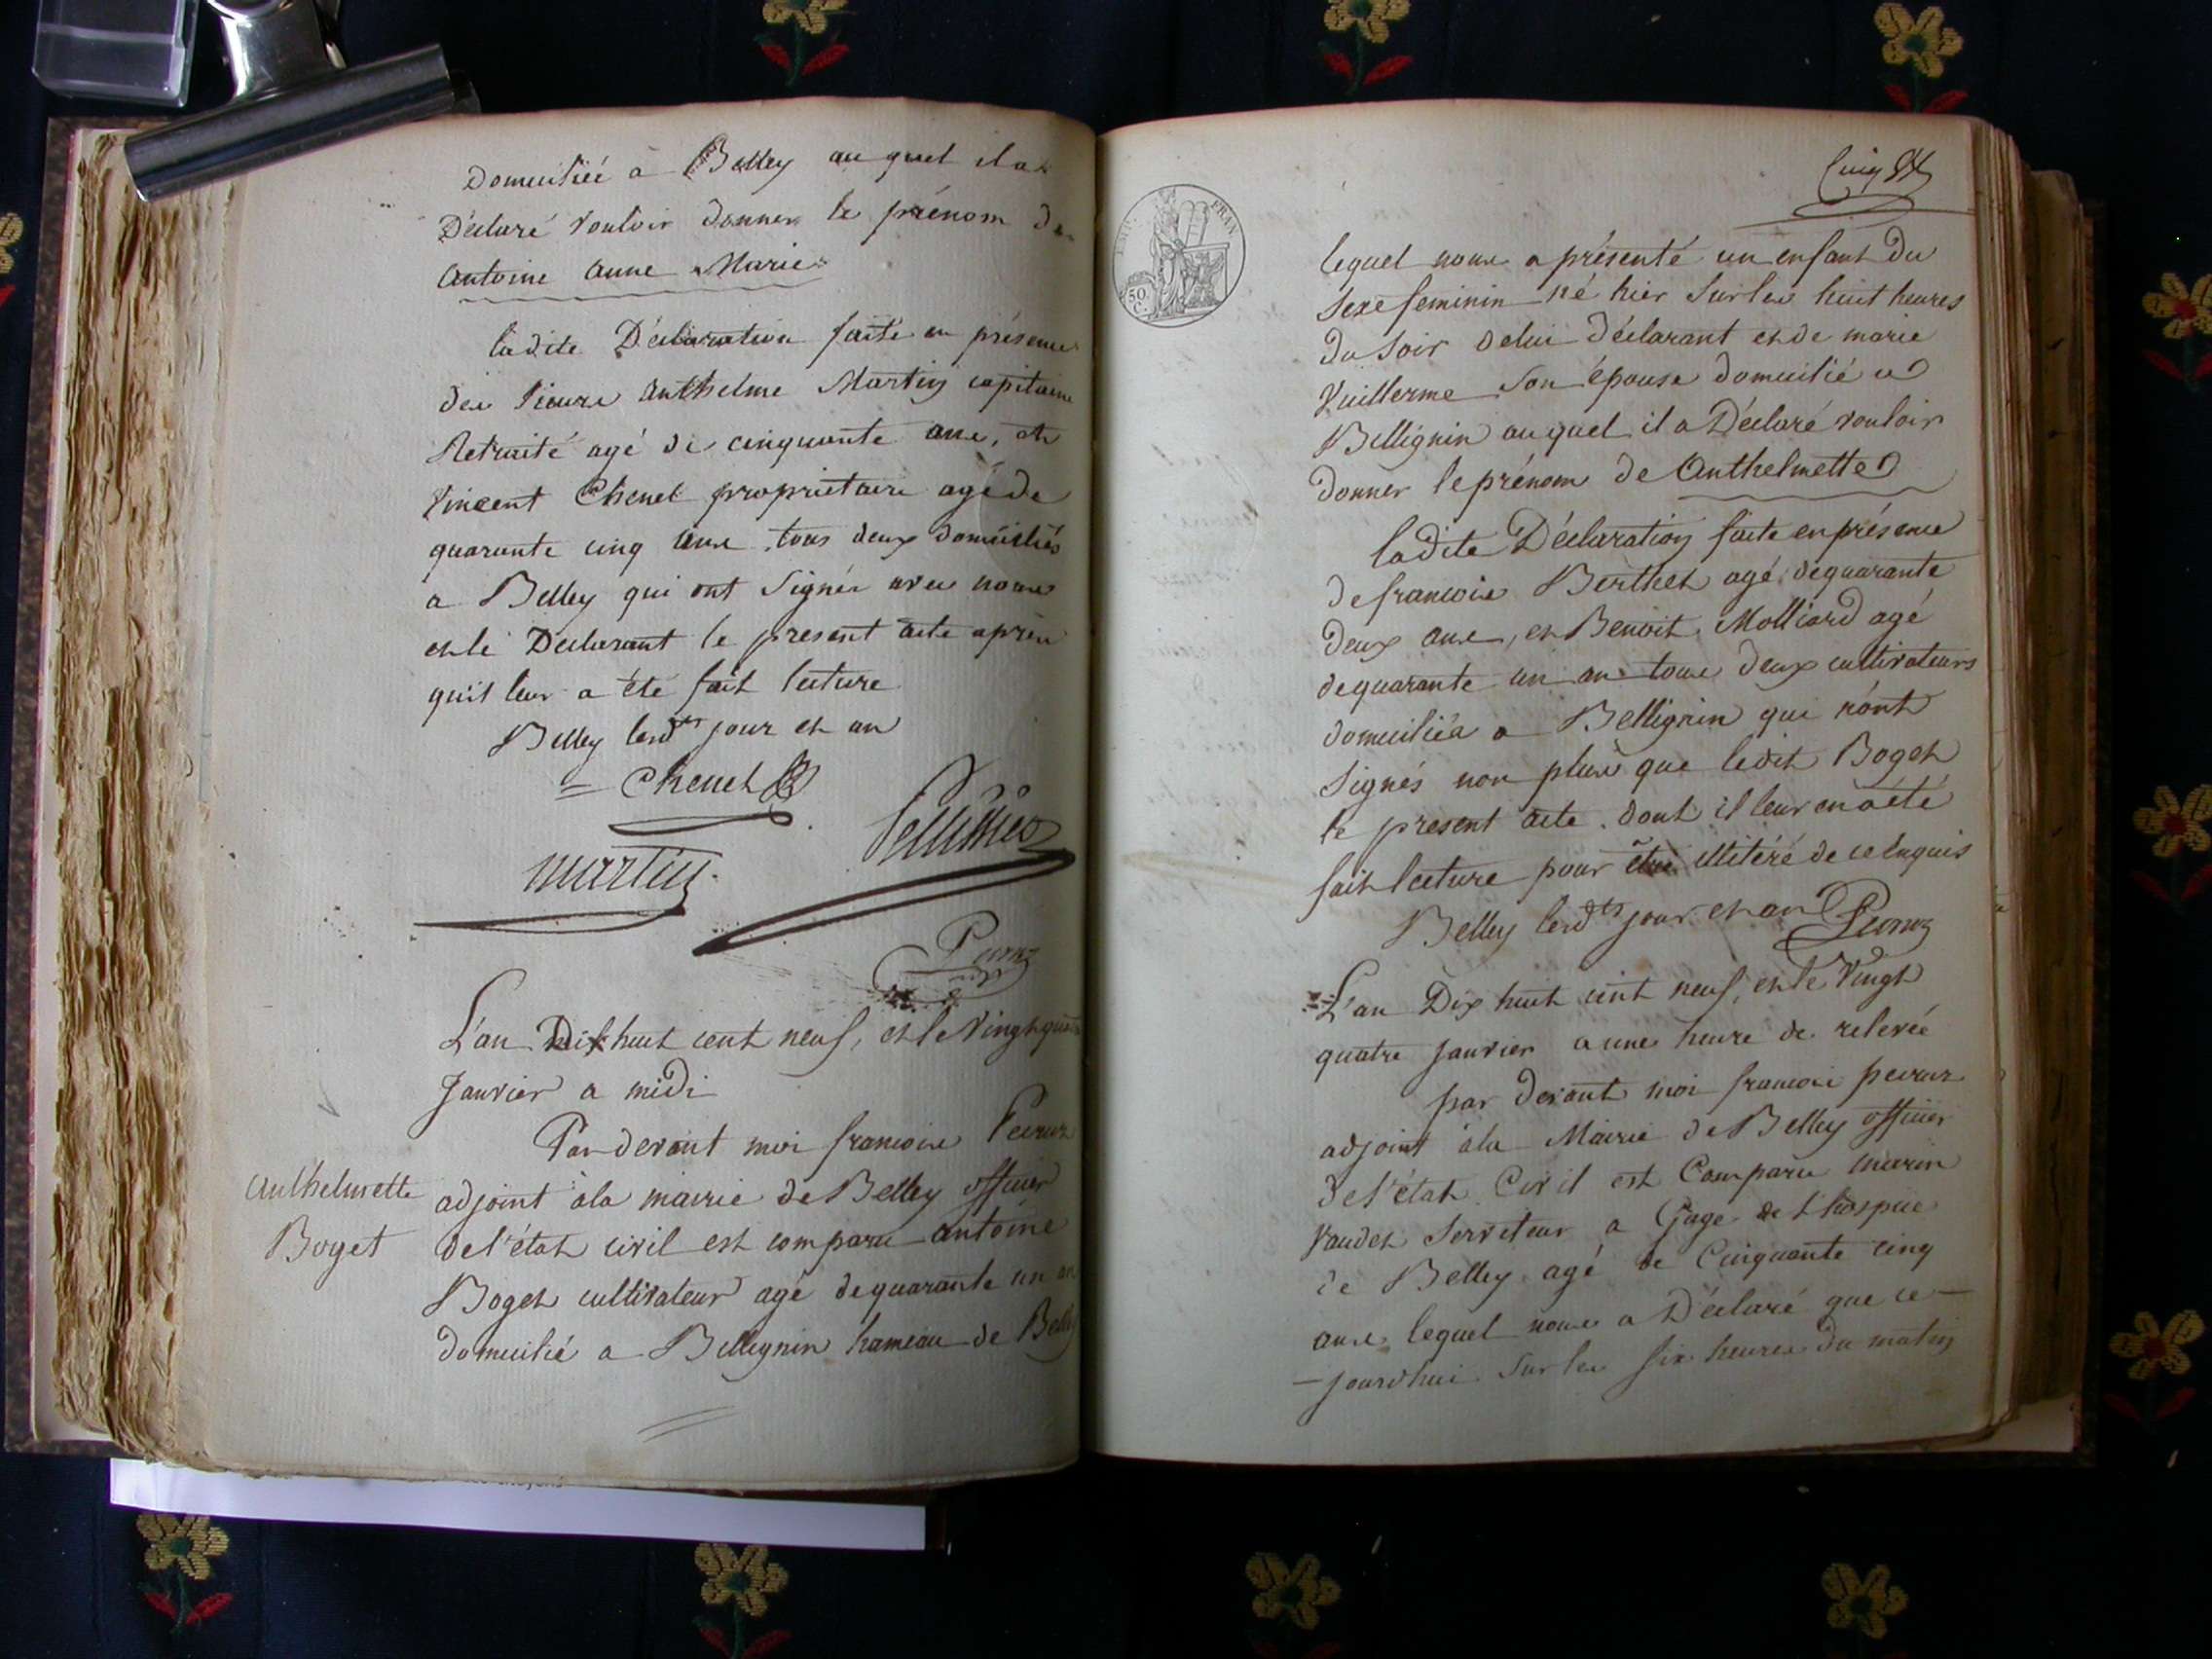 Domiciliée à Belley au quel il a
Déclaré vouloir donner le prénom de
Antoine Anne Marie
ladite Déclaration faite en présence
des sieurs Anthelme Martin capitaine
Retraité agé de cinquante ans, et
Vincent Chenel propriétaire agé de
quarante cinq ans tous deux domiciliés
a Belley qui ont Signés avec nous
et le Déclarant le present acte après
qu'il leur a été fait lecture
Belley lesd.ts jour et an
Chenel
martin
L'an Dix huit cent neuf, et le Vingt quatre
Janvier a midi
Pardevant moi francois
adjoint à la mairie de Belley officier
de l'état civil est comparu antoine
Boget cultivateur agé de quarante un an
domicilié a Bellignin hameau de Belley
Anthelmette
Boget
FRAN.
50
C.
lequel nous a présenté un enfant du
sexe feminin né hier sur les huit heures
du soir de lui déclarant et de marie
Vuillerme son épouse domicilié a
Bellignin auquel il a Déclaré vouloir
donner le prénom de Anthelmette
ladite Déclaration faite en présence
de francois Berthet agé de quarante
deux ans, et Benoit Molliard agé
de quarante un an tous deux cultivateurs
domiciliés a Bellignin qui n'ont
signés non plus que ledit Boget
le present acte. dont il leur en a été
fait lecture pour être illitéré de ce Enquis
Belley lesd.ts jour et an
L'an Dix huit cent neuf, et le Vingt
quatre Janvier a une heure de relevée
par devant moi francois
adjoint à la Mairie de Belley officier
de l'état Civil est Comparu marin
Vaudet Serviteur a Gage de l'hospice
de Belley agé de Cinquante cinq
ans lequel nous a Déclaré que ce
jourd'hui sur les six heures du matin